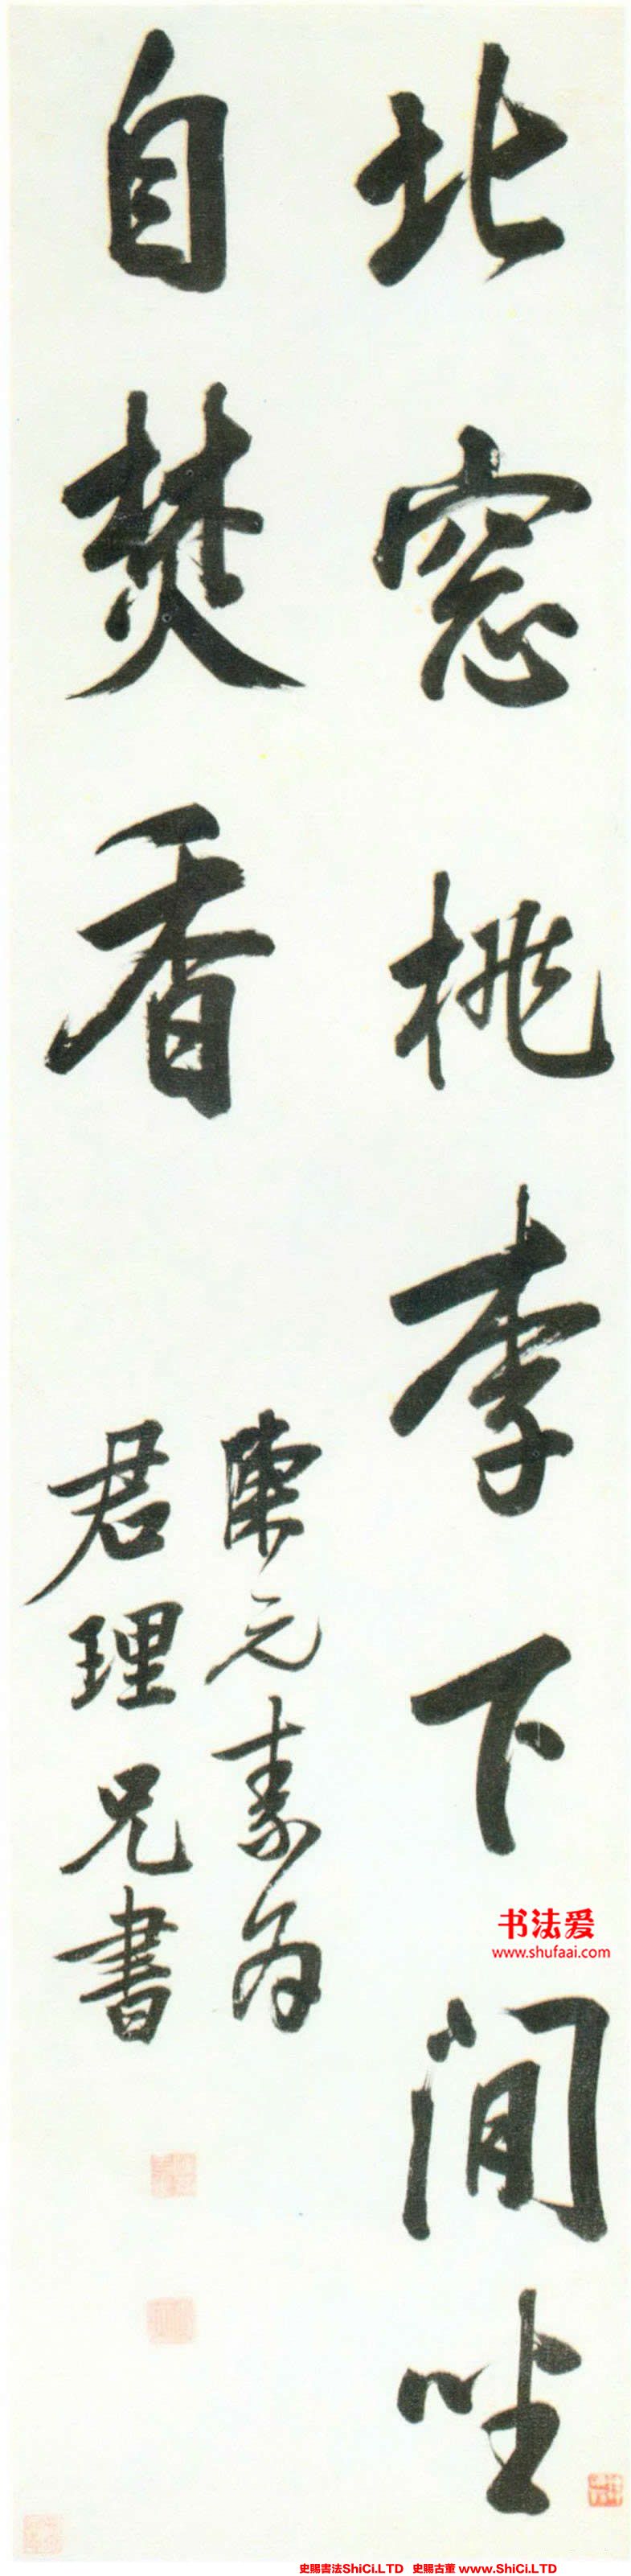 北窓桃李下閒坐
自焚香
陳元素為
君理兄書
书法爱
www.shufaai.com
史赐書法ShiCi.LTD 史赐古董 www.ShiCi.LTD